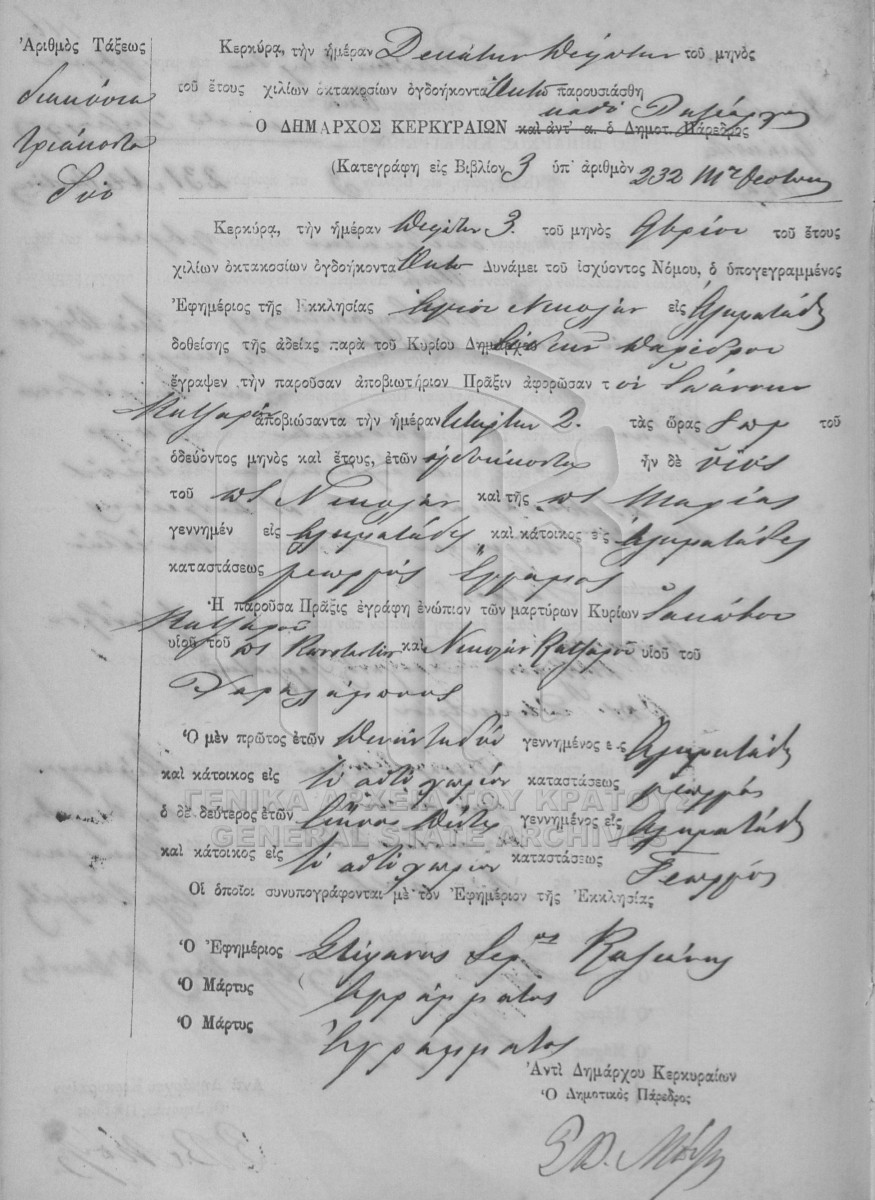 Ἀριθμὸς Τάξεως
διακόσια
τριάκοντα
δύο
Κερκύρᾳ, τὴν ἡμέραν Δεκάτην Πέμπτην τοῦ μηνὸς
τοῦ ἔτους χιλίων ὀκτακοσίων ὀγδοήκοντα Ὀκτὼ παρουσιάσθη
Ο ΔΗΜΑΡΧΟΣ ΚΕΡΚΥΡΑΙΩΝ καὶ ἀντ' α. ὁ Δημοτ. Πάρεδρος
(Κατεγράφη εἰς Βιβλίον 3 ὑπ' ἀριθμὸν 232
Κερκύρᾳ, τὴν ἡμέραν Πέμπτην 3. τοῦ μηνὸς τοῦ ἔτους
χιλίων ὀκτακοσίων ὀγδοήκοντα Ὀκτὼ Δυνάμει τοῦ ἰσχύοντος Νόμου, ὁ ὑπογεγραμμένος
Ἐφημέριος τῆς Εκκλησίας Ἁγίου Νικολάου εἰς Ἀλυματάδες
δοθείσης τῆς ἀδείας παρὰ τοῦ Κυρίου Δημάρχου Παρέδρου
ἔγραψεν τὴν παροῦσαν ἀποβιωτήριον Πρᾶξιν ἀφορῶσαν τ ὸν Ἰωάννην
Κατζαρὸν ἀποβιώσαντα τὴν ἡμέραν Τετάρτην 2. τὰς ὥρας τοῦ
ὁδεύοντος μηνὸς καὶ ἔτους, ἐτῶν ἑβδομήκοντα ἦν δὲ υἱὸς
τοῦ ποτὲ Νικολάου καὶ τῆς ποτὲ Μαρίας
γεννημέν εἰς Ἀλυματάδες καὶ κάτοικος εἰς Ἀλυματάδες
καταστάσεως γεωργὸς ἔγγαμος
Ἡ παροῦσα Πρᾶξις ἐγράφη ἐνώπιον τῶν μαρτύρων Κυρίων Ἰακώβου
Κατζαροῦ
υἱοῦ τοῦ ποτὲ Κωνσταντίνου καὶ Νικολάου Κατζαροῦ υἱοῦ τοῦ
Χαραλάμπους
Ὁ μὲν πρῶτος ἐτῶν πενήντα δύο γεννημένος εἰς Ἀλυματάδες
καὶ κάτοικος εἰς τὸ αὐτὸ χωρίον καταστάσεως γεωργὸς
ὁ δὲ δεύτερος ἐτῶν εἴκοσι πέντε γεννημένος εἰς Ἀλυματάδες
καὶ κάτοικος εἰς τὸ αὐτὸ χωρίον καταστάσεως Γεωργὸς
ΓΕΝΙΚΑ ΑΡΧΕΙΑ ΤΟΥ ΚΡΑΤΟΥΣ
GENERAL STATE ARCHIVES
Οἱ ὁποῖοι συνυπογράφονται μὲ τὸν Ἐφημέριον τῆς Ἐκκλησίας
Ὁ Ἐφημέριος Στέφανος
Ὁ Μάρτυς ἀγράμματος
Ὁ Μάρτυς ἀγράμματος
Ἀντὶ Δημάρχου Κερκυραίων
Ὁ Δημοτικὸς Πάρεδρος